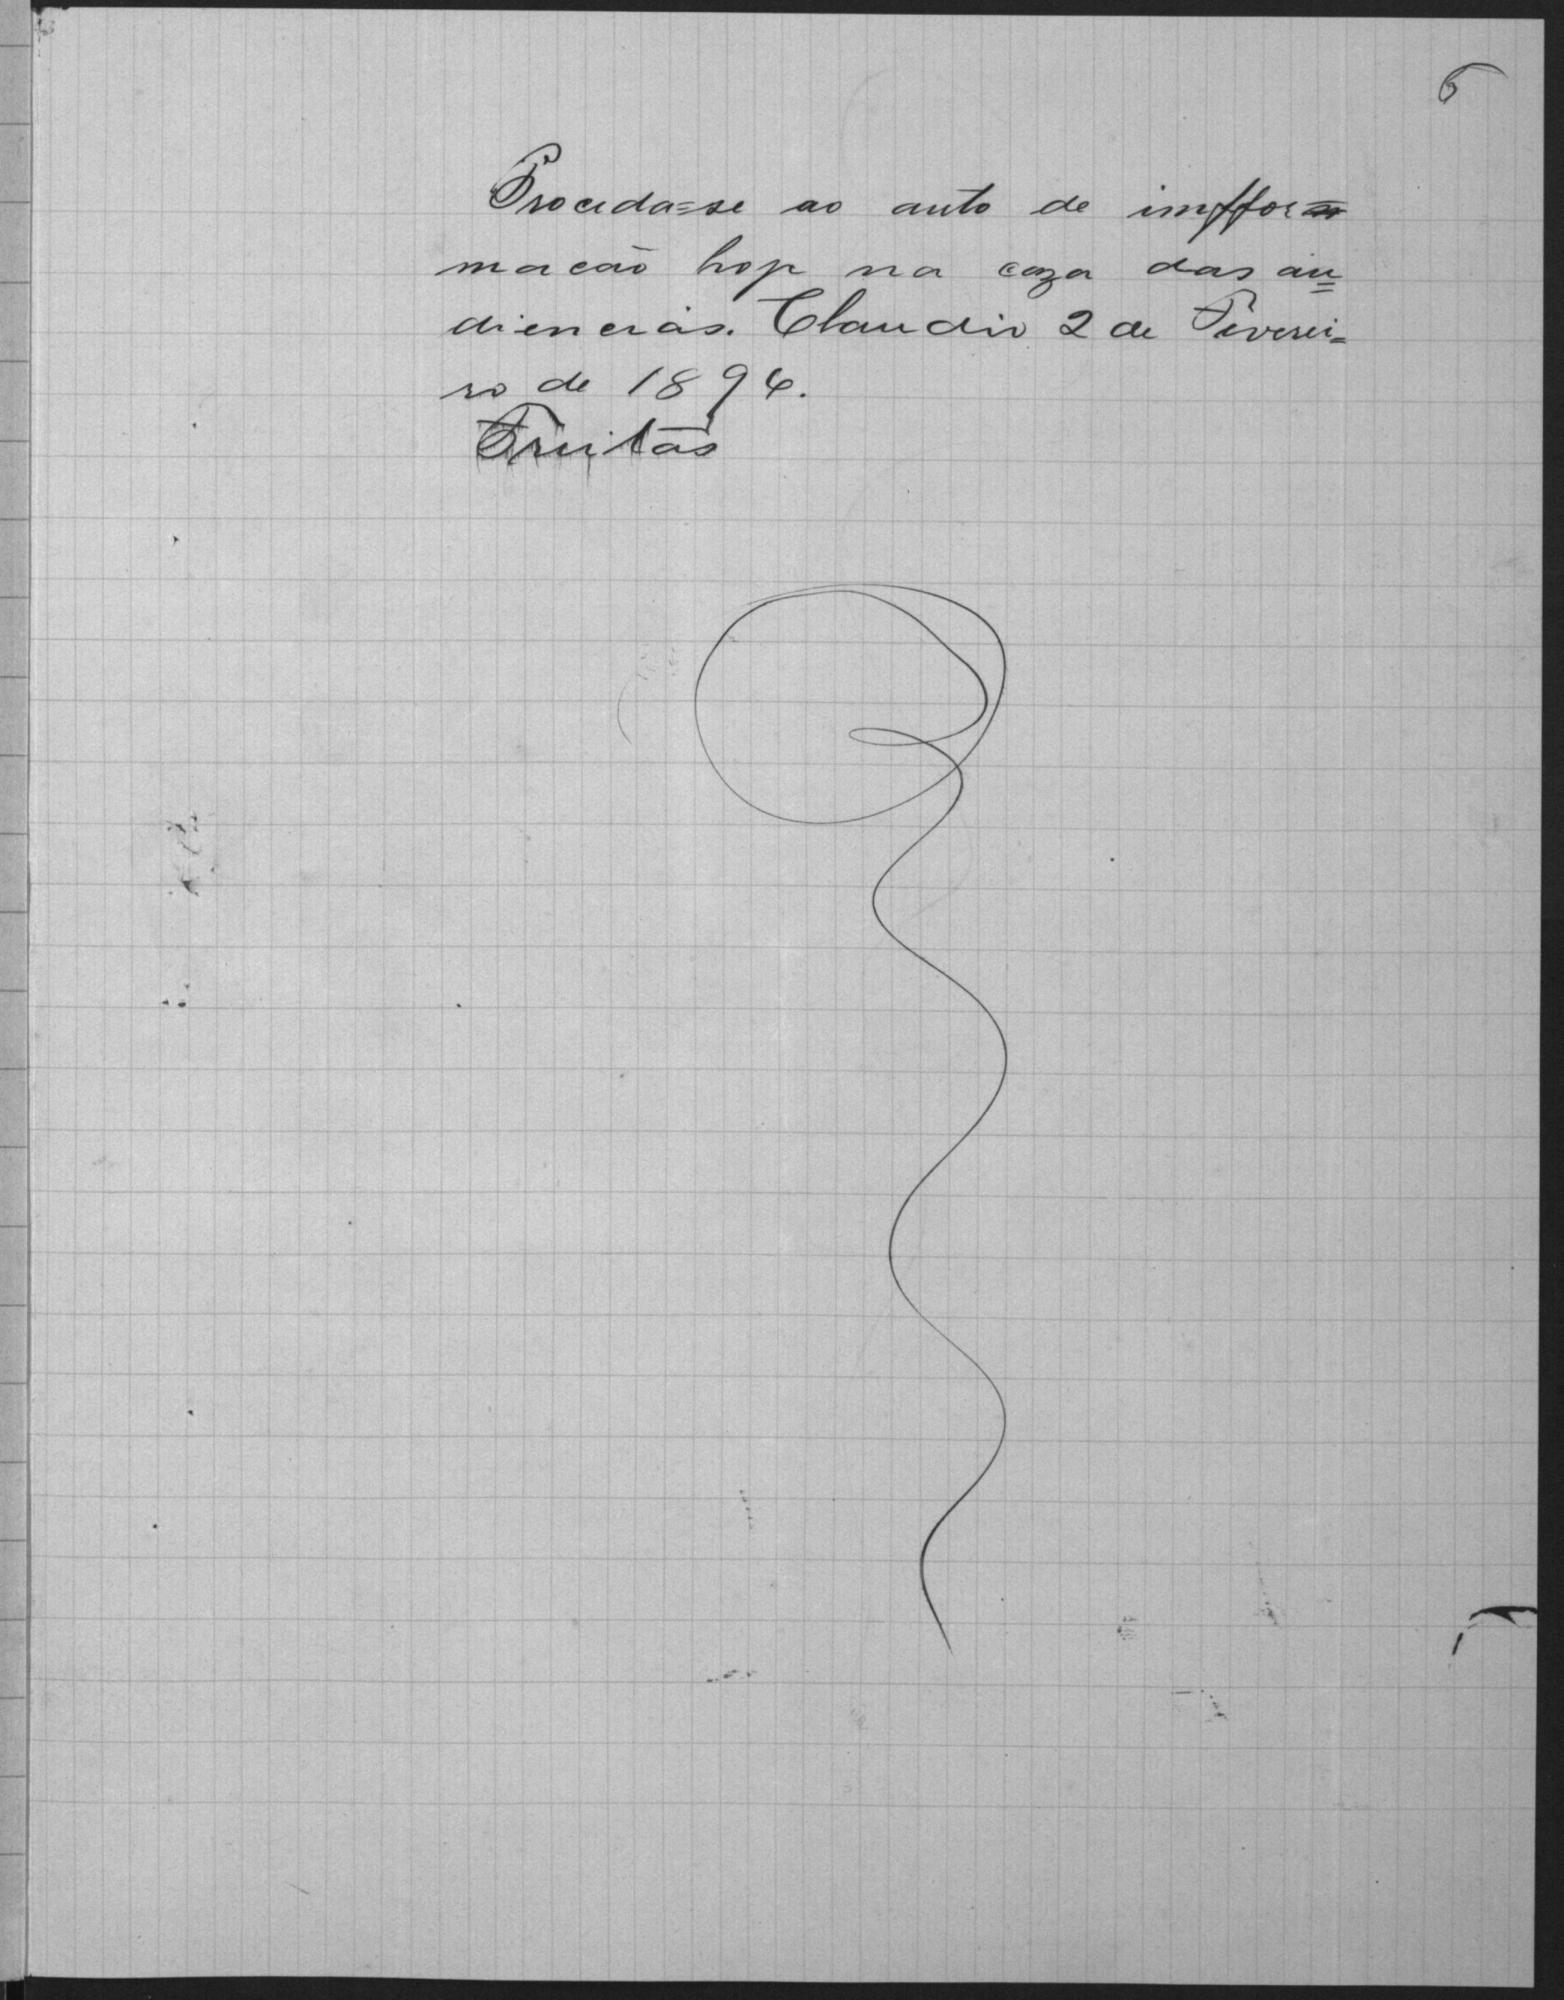 6
Proceda=se ao auto de imffor=
macão hoje na caza das au=
diencias. Claudio 2 de Feverei=
ro de 1894.
Freitas